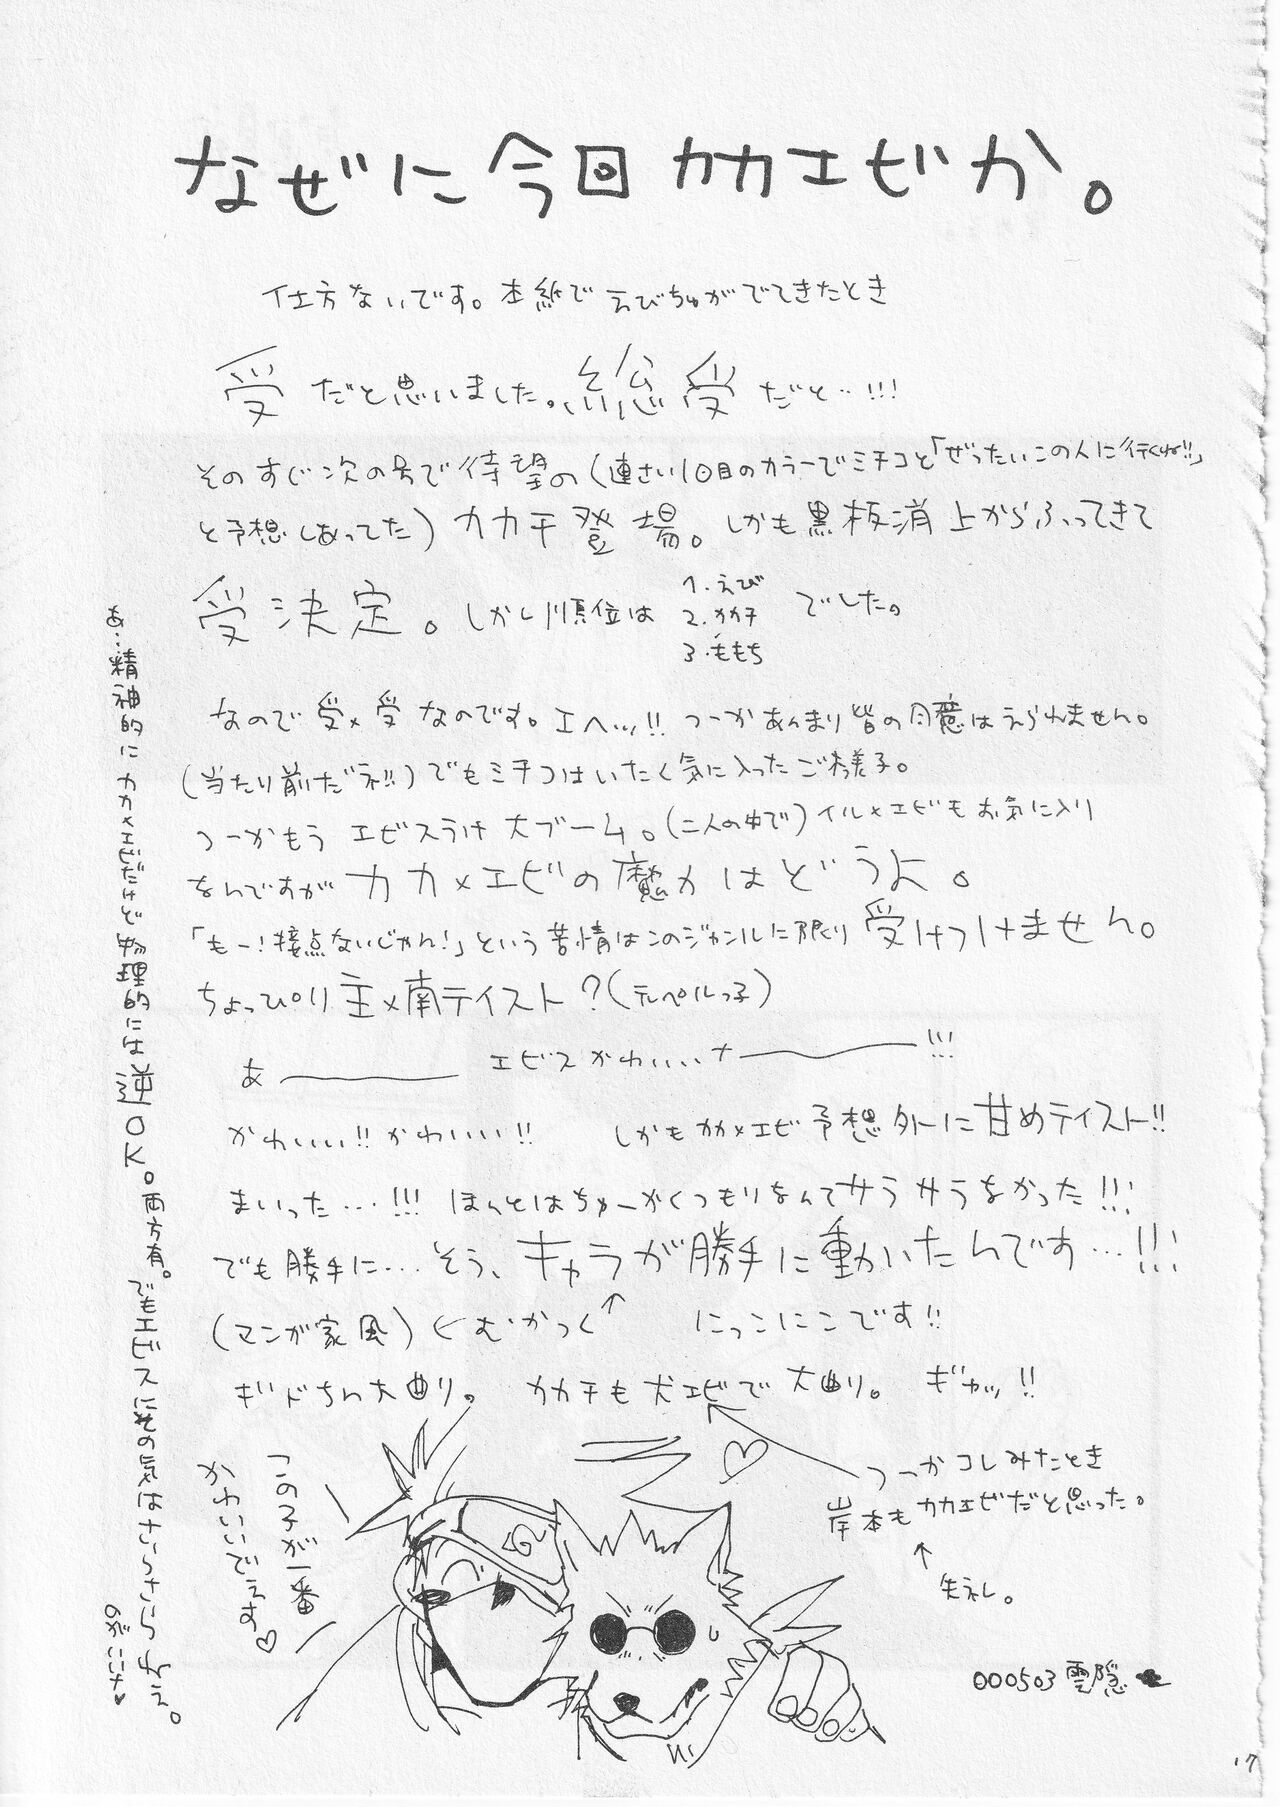 なぜに今回カカエビか。
仕方ないです。本紙でえびちゅがでてきたとき
受だと思いました。総受だと…!!!
そのすぐ次の号で待望の(連さい1回目のカラーでミチコと「ぜったいこの人に行くね!!」
と予想しあってた)カカチ登場。しかも黒板消上からふってきて
受決定。しかし順位は
1.えび
2.カカチ
3.ももち
でした。
なので受×受なのです。エヘッ!!つーかあんまり皆の同意はえられません。
(当たり前だネ!!)でもミチコはいたく気に入ったご様子。
つーかもうエビスうけ大ブーム。(二人の中で)イル×エビもお気に入り
なんですがカカ×エビの魔力はどうよ。
「もー!接点ないじゃん!」という苦情はこのジャンルに限り受けつけません。
ちょっぴり主×南テイスト?(テレペルっ子)
あ――― エビスかわいいナ―――!!!
かわいい!!かわいい!! しかもカカ×エビ予想外に甘めテイスト!!
まいった…!!! ほんとはちゅーかくつもりなんてサラサラなかった!!!
でも勝手に…そう、キャラが勝手に動いたんです…!!!
(マンガ家風)←むかつく↑ にっこにこです!!
ギドちん大曲り。カカチも犬エビで大曲り。ギャッ!!
つーかコレみたとき
岸本もカカエビだと思った。
↑
失ネレ。
この子が一番
かわいいでぇす♡
000503 雲隠
あ…精神的にカカ×エビだけど物理的には逆OK。両方有。でもエビスにその気はさらさらねぇ。
のがここナ♥
17